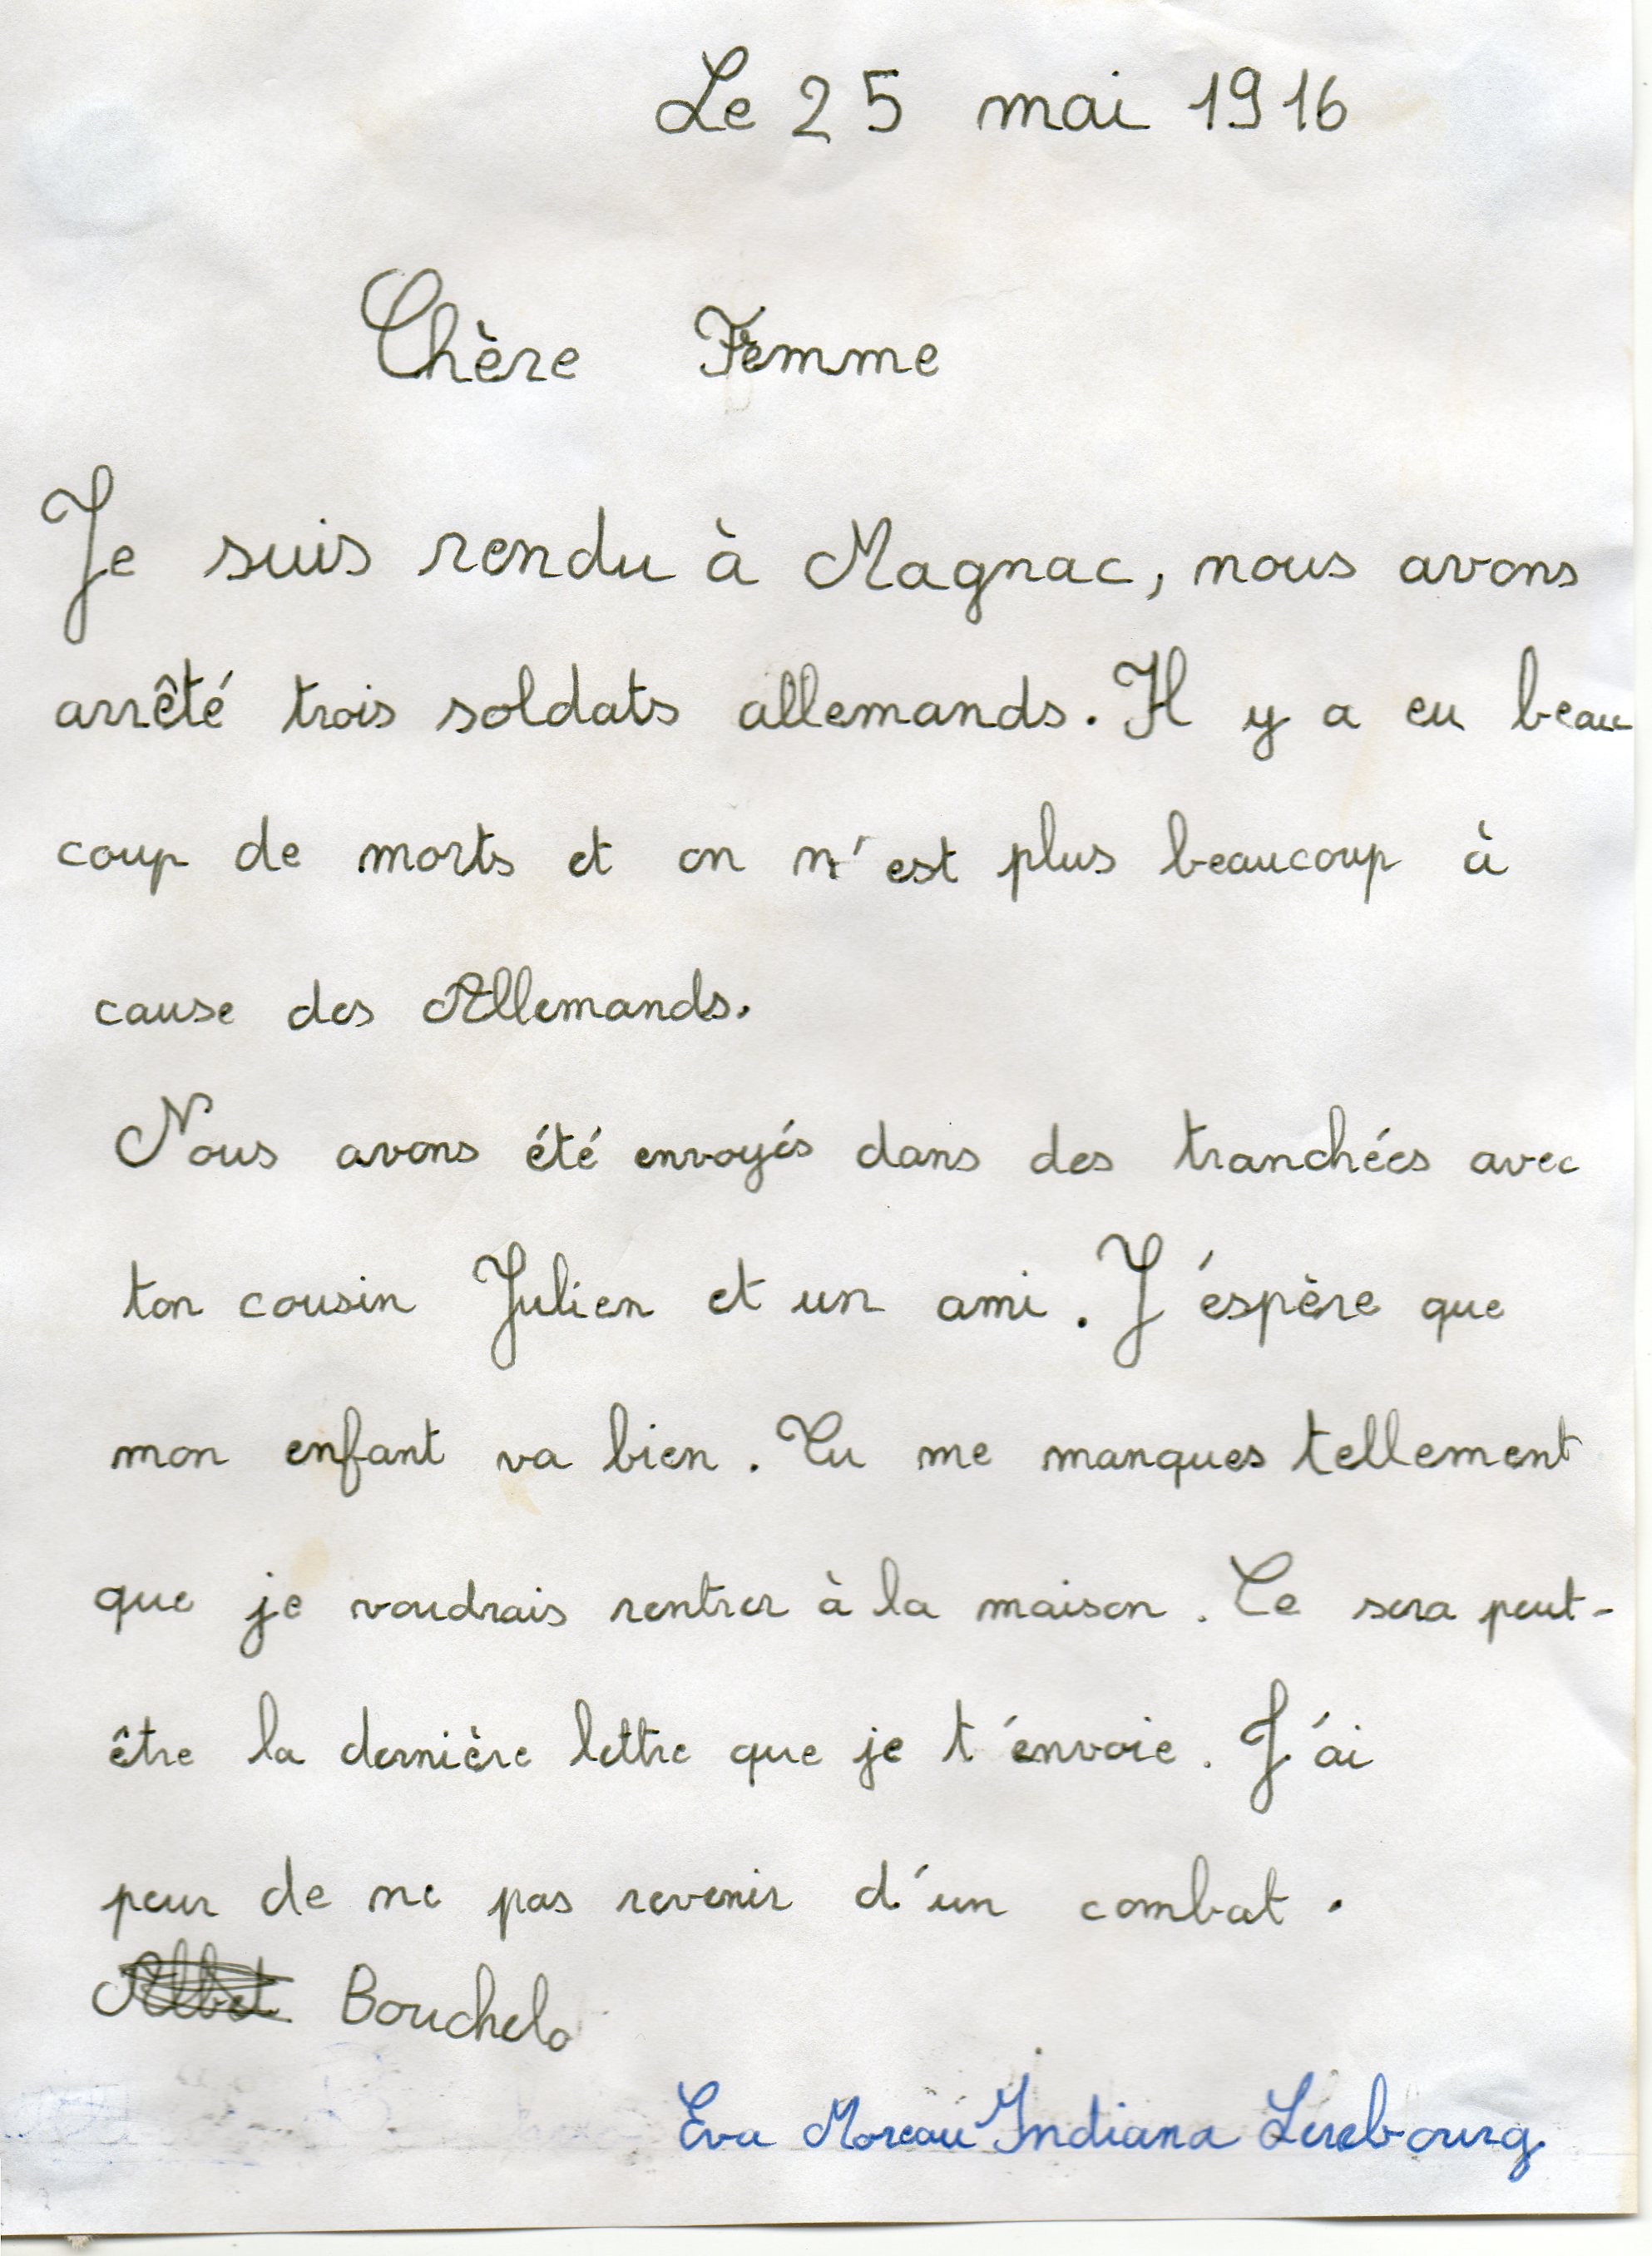 Le 25 mai 1916
Chère Femme
Je suis rendu à Magnac, nous avons
arrêté trois soldats allemands. Il y a eu beau
coup de morts et on n'est plus beaucoup à
cause des Allemands.
Nous avons été envoyés dans des tranchées avec
ton cousin Julien et un ami. J'éspère que
mon enfant va bien. Tu me manques tellement
que je voudrais rentrer à la maison. Ce sera peut-
être la dernière lettre que je t'envoie. J'ai
peur de ne pas revenir d'un combat.
Bouchelo
Eva Moreau Indiana Lerebourg